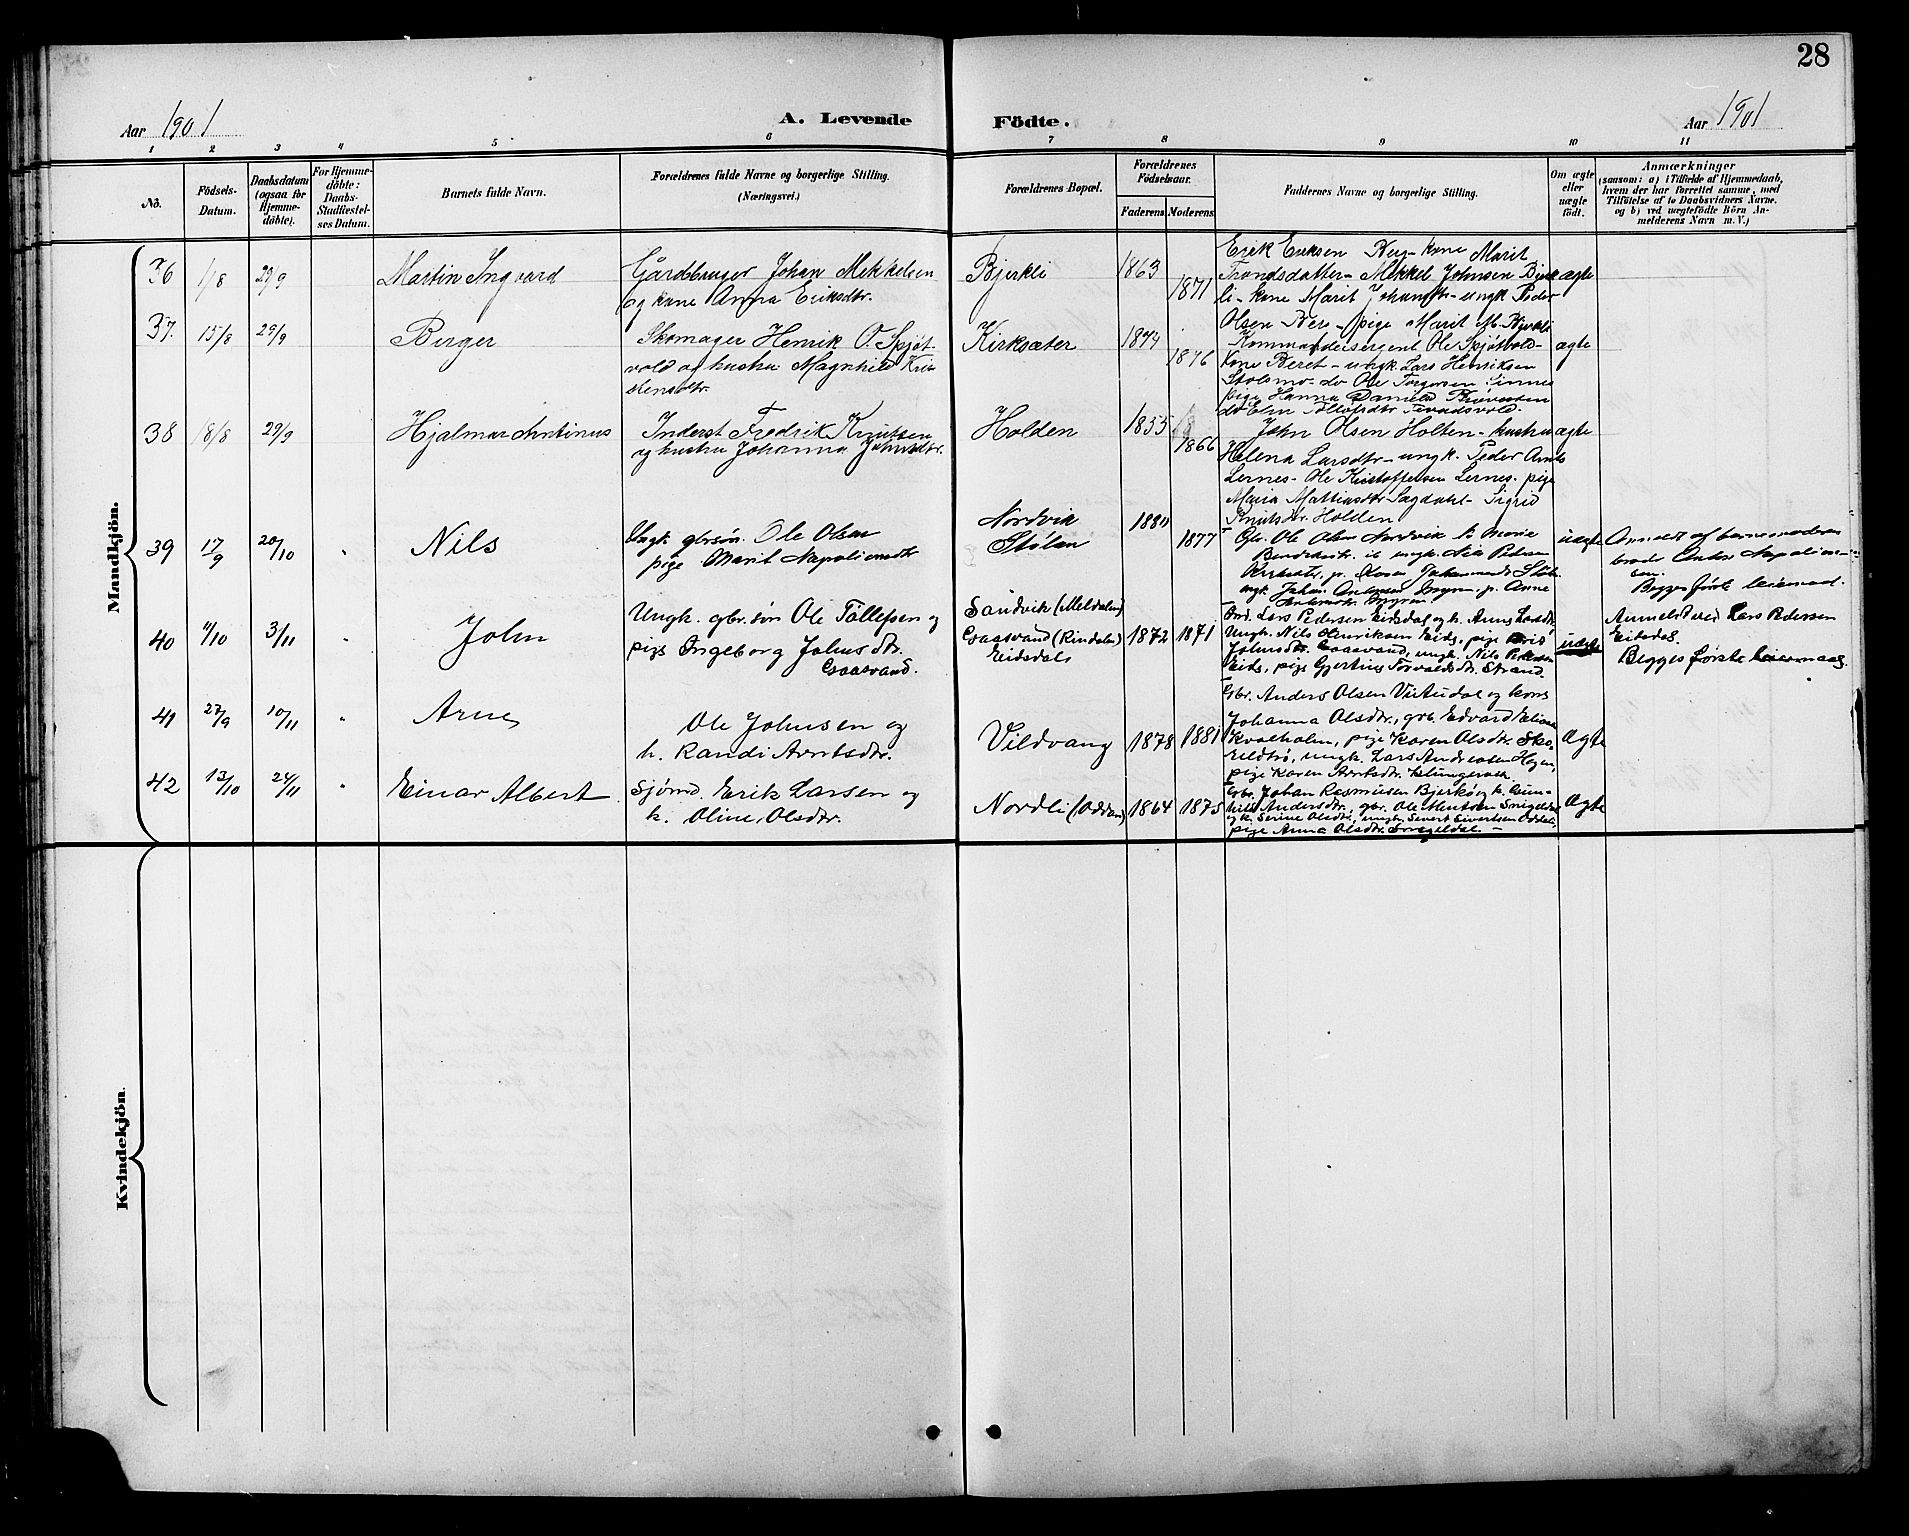 28
Aar 1901
A. Levende Födte.
Aar 1901
1 2 3 4 5 6 7 8 9 10 11
No.
Födsels-Datum.
Daabsdatum (ogsaa for Hjemmedöbte).
For Hjemmedöbte: Daabs-Stadfæstelses Datum.
Barnets fulde Navn.
Forældrenes fulde Navne og borgerlige Stilling.
(Næringsvei.)
Forældrenes Bopæl.
Forældrenes Födselsaar.
Faderens Moderens
Faddernes Navne og borgerlige Stilling.
Om ægte eller uægte födt.
Anmærkninger
(saasom: a) i Tilfælde af Hjemmedaab,
hvem der har forrettet samme, med
Tilföielse af to Daabsvidners Navne.
og b) ved uægtefödte Börn An-
melderens Navn m. V.)
Mandkjön.
36 1/8 29/9 Martin Ingvard
Gårdbruger Johan Mekkelsen
og kone Anna Eriksdtr.
Bjerkli 1863 1871
Erik Eriksen Berg - kone Marit
Trondsdatter - Mekkel Johnsen Bjerk
li - kone Marit Johansdtr - ungk Peder
Olsen Berg - pige Marit M. Bjerkli
ægte
37. 15/8 29/9 Berger
Skomager Henrik O. Spjöt
vold og hustru Magnhild Kri
stensdtr.
Kirksæter 1874 1876
Kommandersergent Ole Spjötvold -
Kone Beret - ungk. Lars Henriksen
Stolsmo - do Ole Torgersen Sinnes
pige Hanna
ægte
38 18/8 29/9 Hjalmar Antinus
Inderst Fredrik Knutsen
og hustru Johanna Johnsdtr.
Holden 1855 1866
John Olsen Holten - hustru
Helena Larsdtr - ungk. Peder Arnts
Lernes - Ole Kristoffersen Lernes - pige
Maria Mattiasdtr Sagdahl - Sigrid
Knutsdtr. Holden
ægte
39 17/9 20/10 " Nils
Ungk. gbrsøn. Ole Olsen
pige Marit Napolionsdtr
Nordvik
Stølen
1880 1877
Gbr. Ole Olsen Nordvik k. Marie
Bendiksdtr. ungk. Nils Pedersen
uægte
Anmeldt af barnemoderens
broder Anders Napolion-
sen.
Begges første leiermaal.
40 11/10 3/11 " John
Ungk. gbr.søn Ole Tøllefsen og
pige Ingeborg Johnsdtr.
Gaasvand.
Sandvik (Meldalen)
Gaasvand (Rindalen)
Eidsdal
1872 1871
Ind. Lars Pedersen Eidsdal og k. Anne Larsdtr.
Ungk. Nils Henriksen Eids, pige
Johnsdtr. Gaasvand, ungk. Nils Pedersen
Eids, pige Gjertine Torvaldsdtr. Strand.
uægte
Anmeldt ved Lars Pedersen
Eidsdal.
Begges første leiermaal.
41 27/9 10/11 " Arne
Ole Johnsen og
h. Randi Arntsdtr.
Vildvang 1878 1881
Gbr. Anders Olsen Vutudal og kone
Johanna Olsdtr., gbr. Edvard Eliasen
Kvalholm, pige Karen Olsdtr. Sko
Eldtrø, ungk. Lars Andreasen Hegen,
pige Karen Arntsdtr. Klungervik.
Ægte
42 13/10 24/11 " Einar Albert
Sjømd. Erik Larsen og
h. Oline Olsdtr.
Nordli (Oddan) 1864 1875
Gbr. Johan Rasmusen Bjerkø og k. Gun-
hild Andersdtr., gbr. Ole Mentsen
og k. Serine Olsdtr., ungk. Sivert Sivertsen
pige Anna Olsdtr.
Ægte
Kvindekjön.